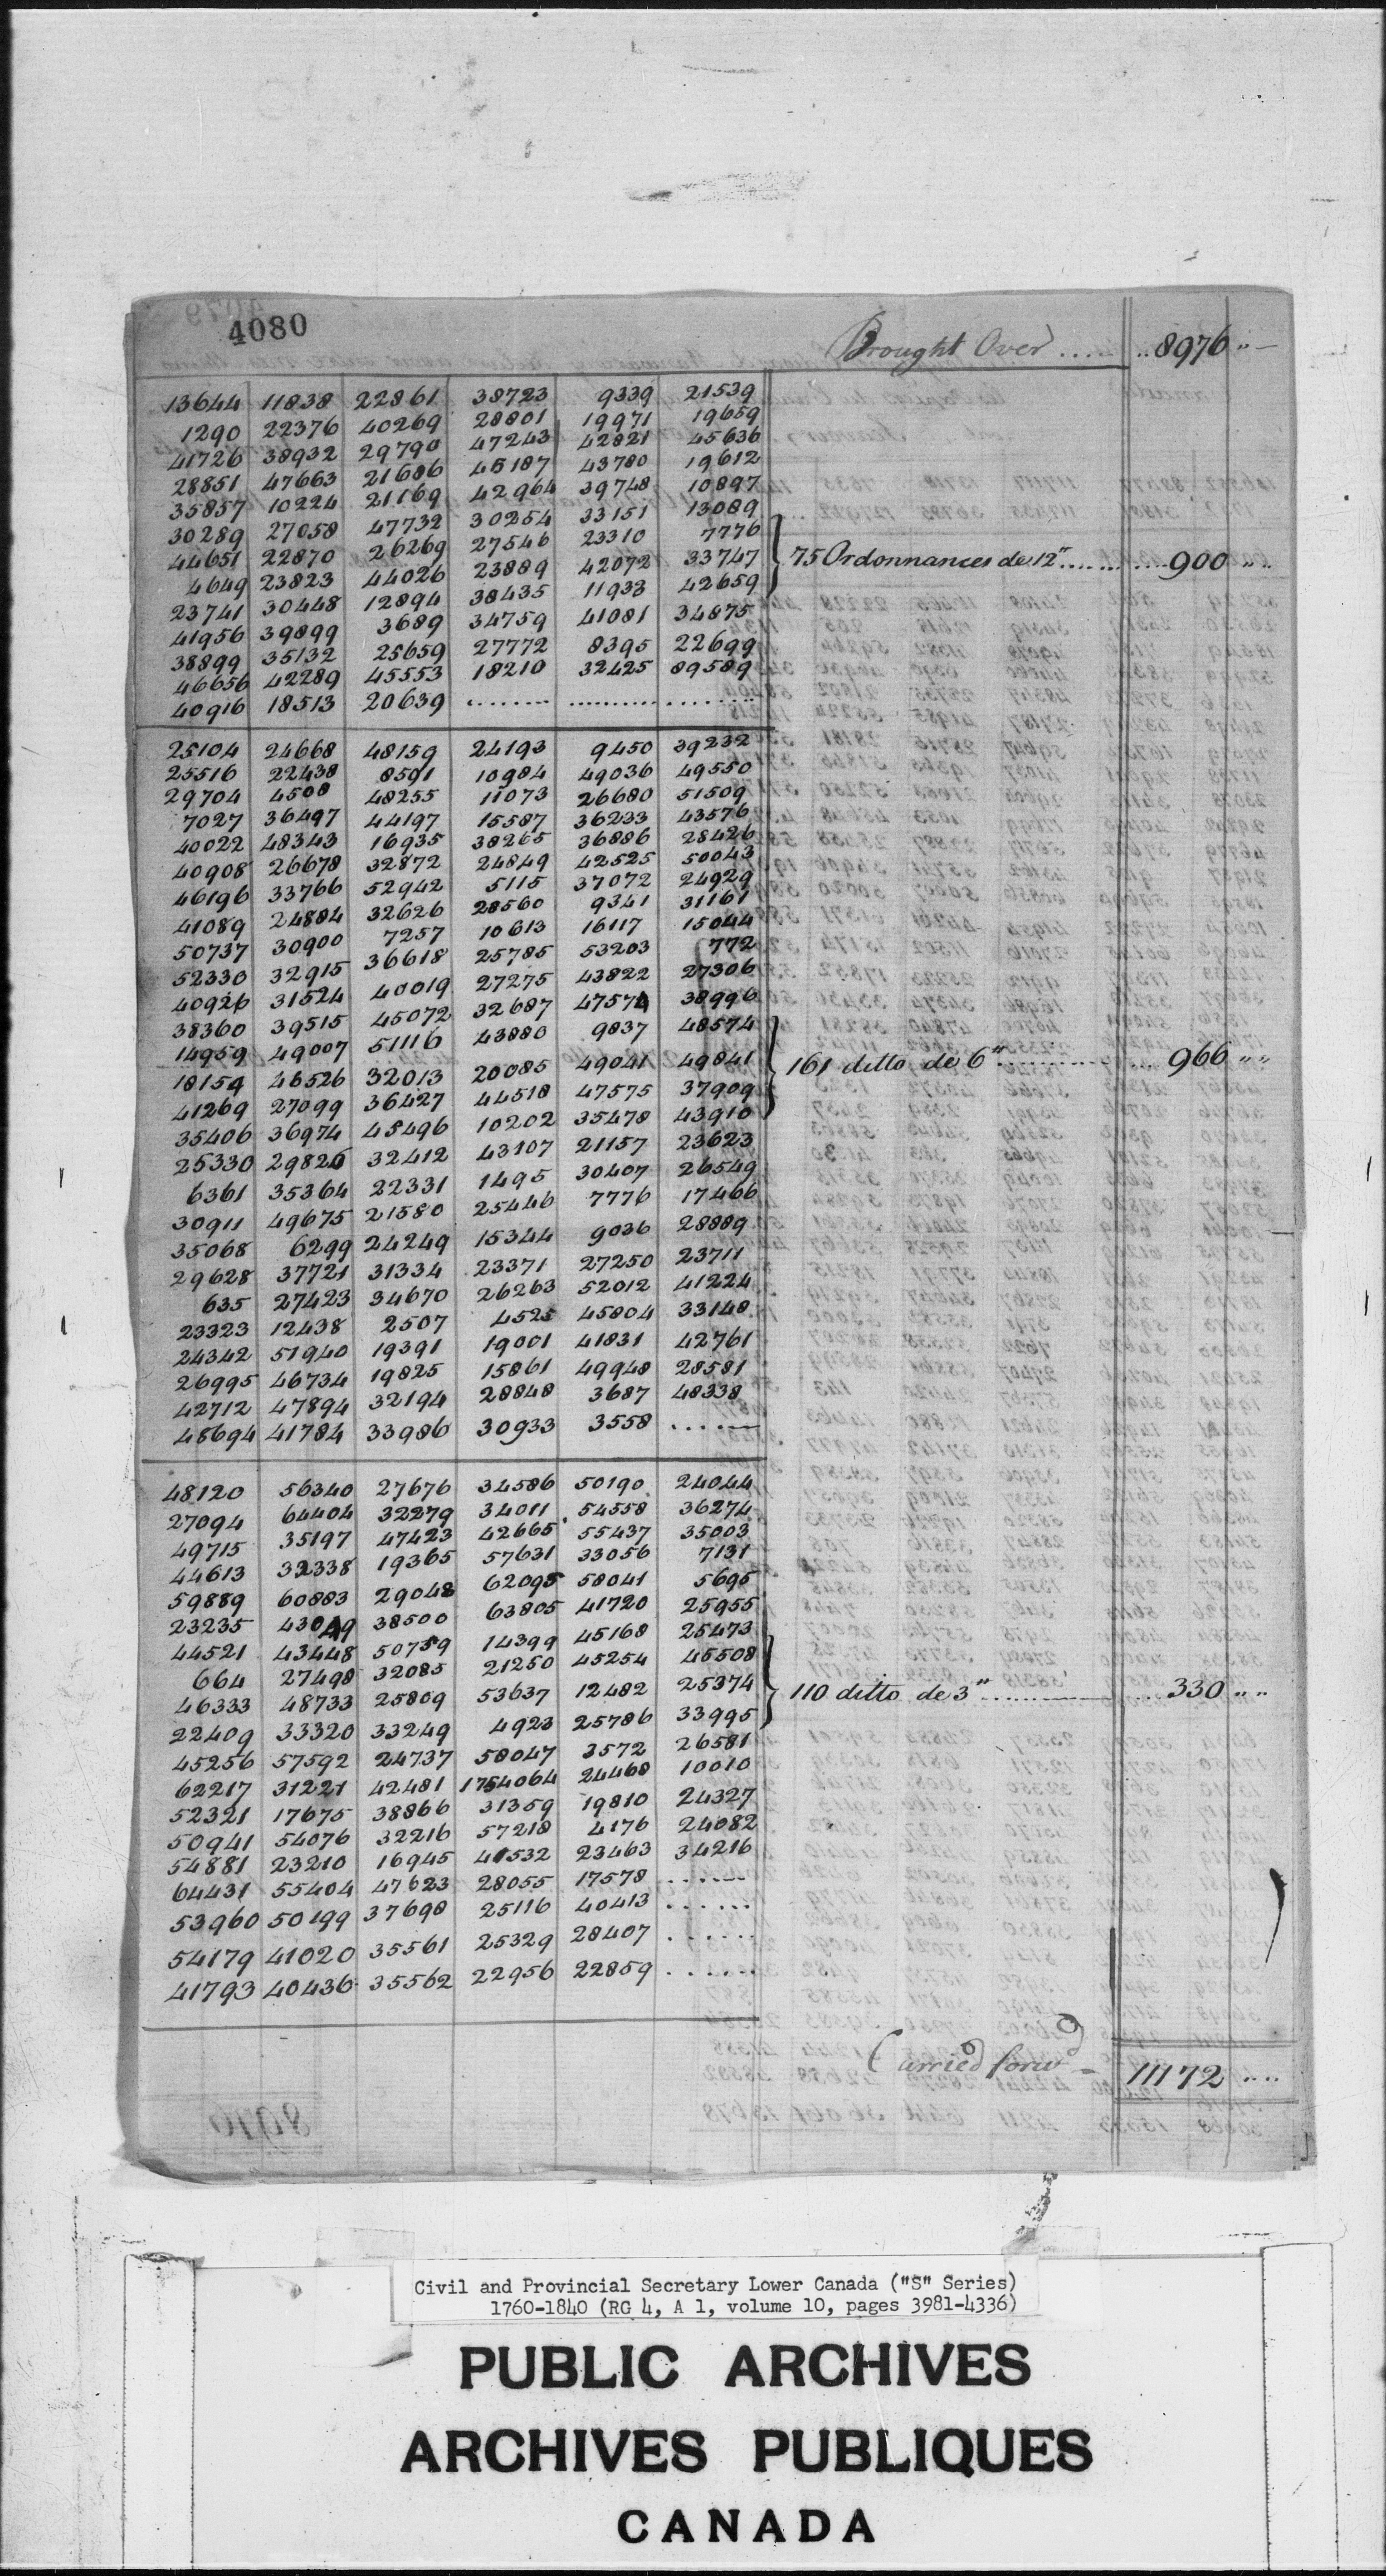 4080
Brought Over .... ..8976 " —
13644 11838 22861 38723 9339 21539
1290 22376 40269 28801 19971 19659
41726 38932 29790 47243 42821 45636
28851 47663 21686 45187 43780 19612
35857 10224 21169 42964 39748 10897
30289 27058 47732 30254 33151 13089
44651 22870 26269 27546 23310 7776
4649 23823 44026 23889 42072 33747 75 Ordonnances de 12" ........... 900 " "
23741 30448 12894 38435 11933 42659
41956 39899 3689 34759 41081 34875
38899 35132 25659 27772 8395 22699
46656 42289 45553 18210 32425 89589
40916 18513 20639 ........ ........... .........
25104 24668 48159 24193 9450 39232
25516 22438 8591 10984 49036 49550
29704 4508 48255 11073 26680 51509
7027 36497 44197 15587 36233 43576
40022 48343 16935 38265 36886 28426
40908 26678 32872 24849 42525 50043
46196 33766 52942 5115 37072 24929
41089 24884 32626 28560 9341 31161
50737 30900 7257 10613 16117 15044
52330 32915 36618 25785 53203 772
40926 31524 40019 27275 43822 27306
38360 39515 45072 32687 47574 38996
14959 49007 51116 43880 9837 48574
18159 46526 32013 20085 49041 49841 161 ditto de 6" ........... 966 " "
41269 27099 36427 44518 47575 37909
35406 36974 45496 10202 35478 43910
25330 29826 32412 43107 21157 23623
6361 35364 22331 1495 30407 26549
30911 49675 21580 25446 7776 17466
35068 6299 24249 15344 9036 28889
29628 37721 31334 23371 27250 23711
635 27423 34670 26263 52012 41224
23323 12438 2507 4525 45804 33148
24342 51940 19391 19001 41831 42761
26995 46734 19825 15861 49948 28581
42712 47894 32194 28848 3687 48338
48694 41784 33986 30933 3558 .......
48120 56340 27676 34586 50190 24044
27094 64404 32279 34011 54558 36274
49715 35197 47423 42665 55437 35003
44613 32338 19365 57631 33056 7131
59889 60883 29048 62095 58041 5695
23235 43049 38500 63805 41720 25955
44521 43448 50759 14399 45168 25473
664 27498 32085 21250 45254 45508
46333 48733 25809 53637 12482 25374 110 ditto de 3" ........... 330 " "
22409 33320 33249 4923 25786 33995
45256 57592 24737 58047 3572 26581
62217 31221 42481 1754064 24468 10010
52321 17675 38866 31359 19810 24327
50941 54076 32216 57218 4176 24082
54881 23210 16945 41532 23463 34216
64431 55404 47623 28055 17578 .......
53960 50199 37698 25116 40413 .......
54179 41020 35561 25329 28407 .......
41793 40436 35562 22956 22859 .......
Carried forwd = 11172 " "
Civil and Provincial Secretary Lower Canada ("S" Series)
1760-1840 (RG 4, A 1, volume 10, pages 3981-4336)
PUBLIC ARCHIVES
ARCHIVES PUBLIQUES
CANADA